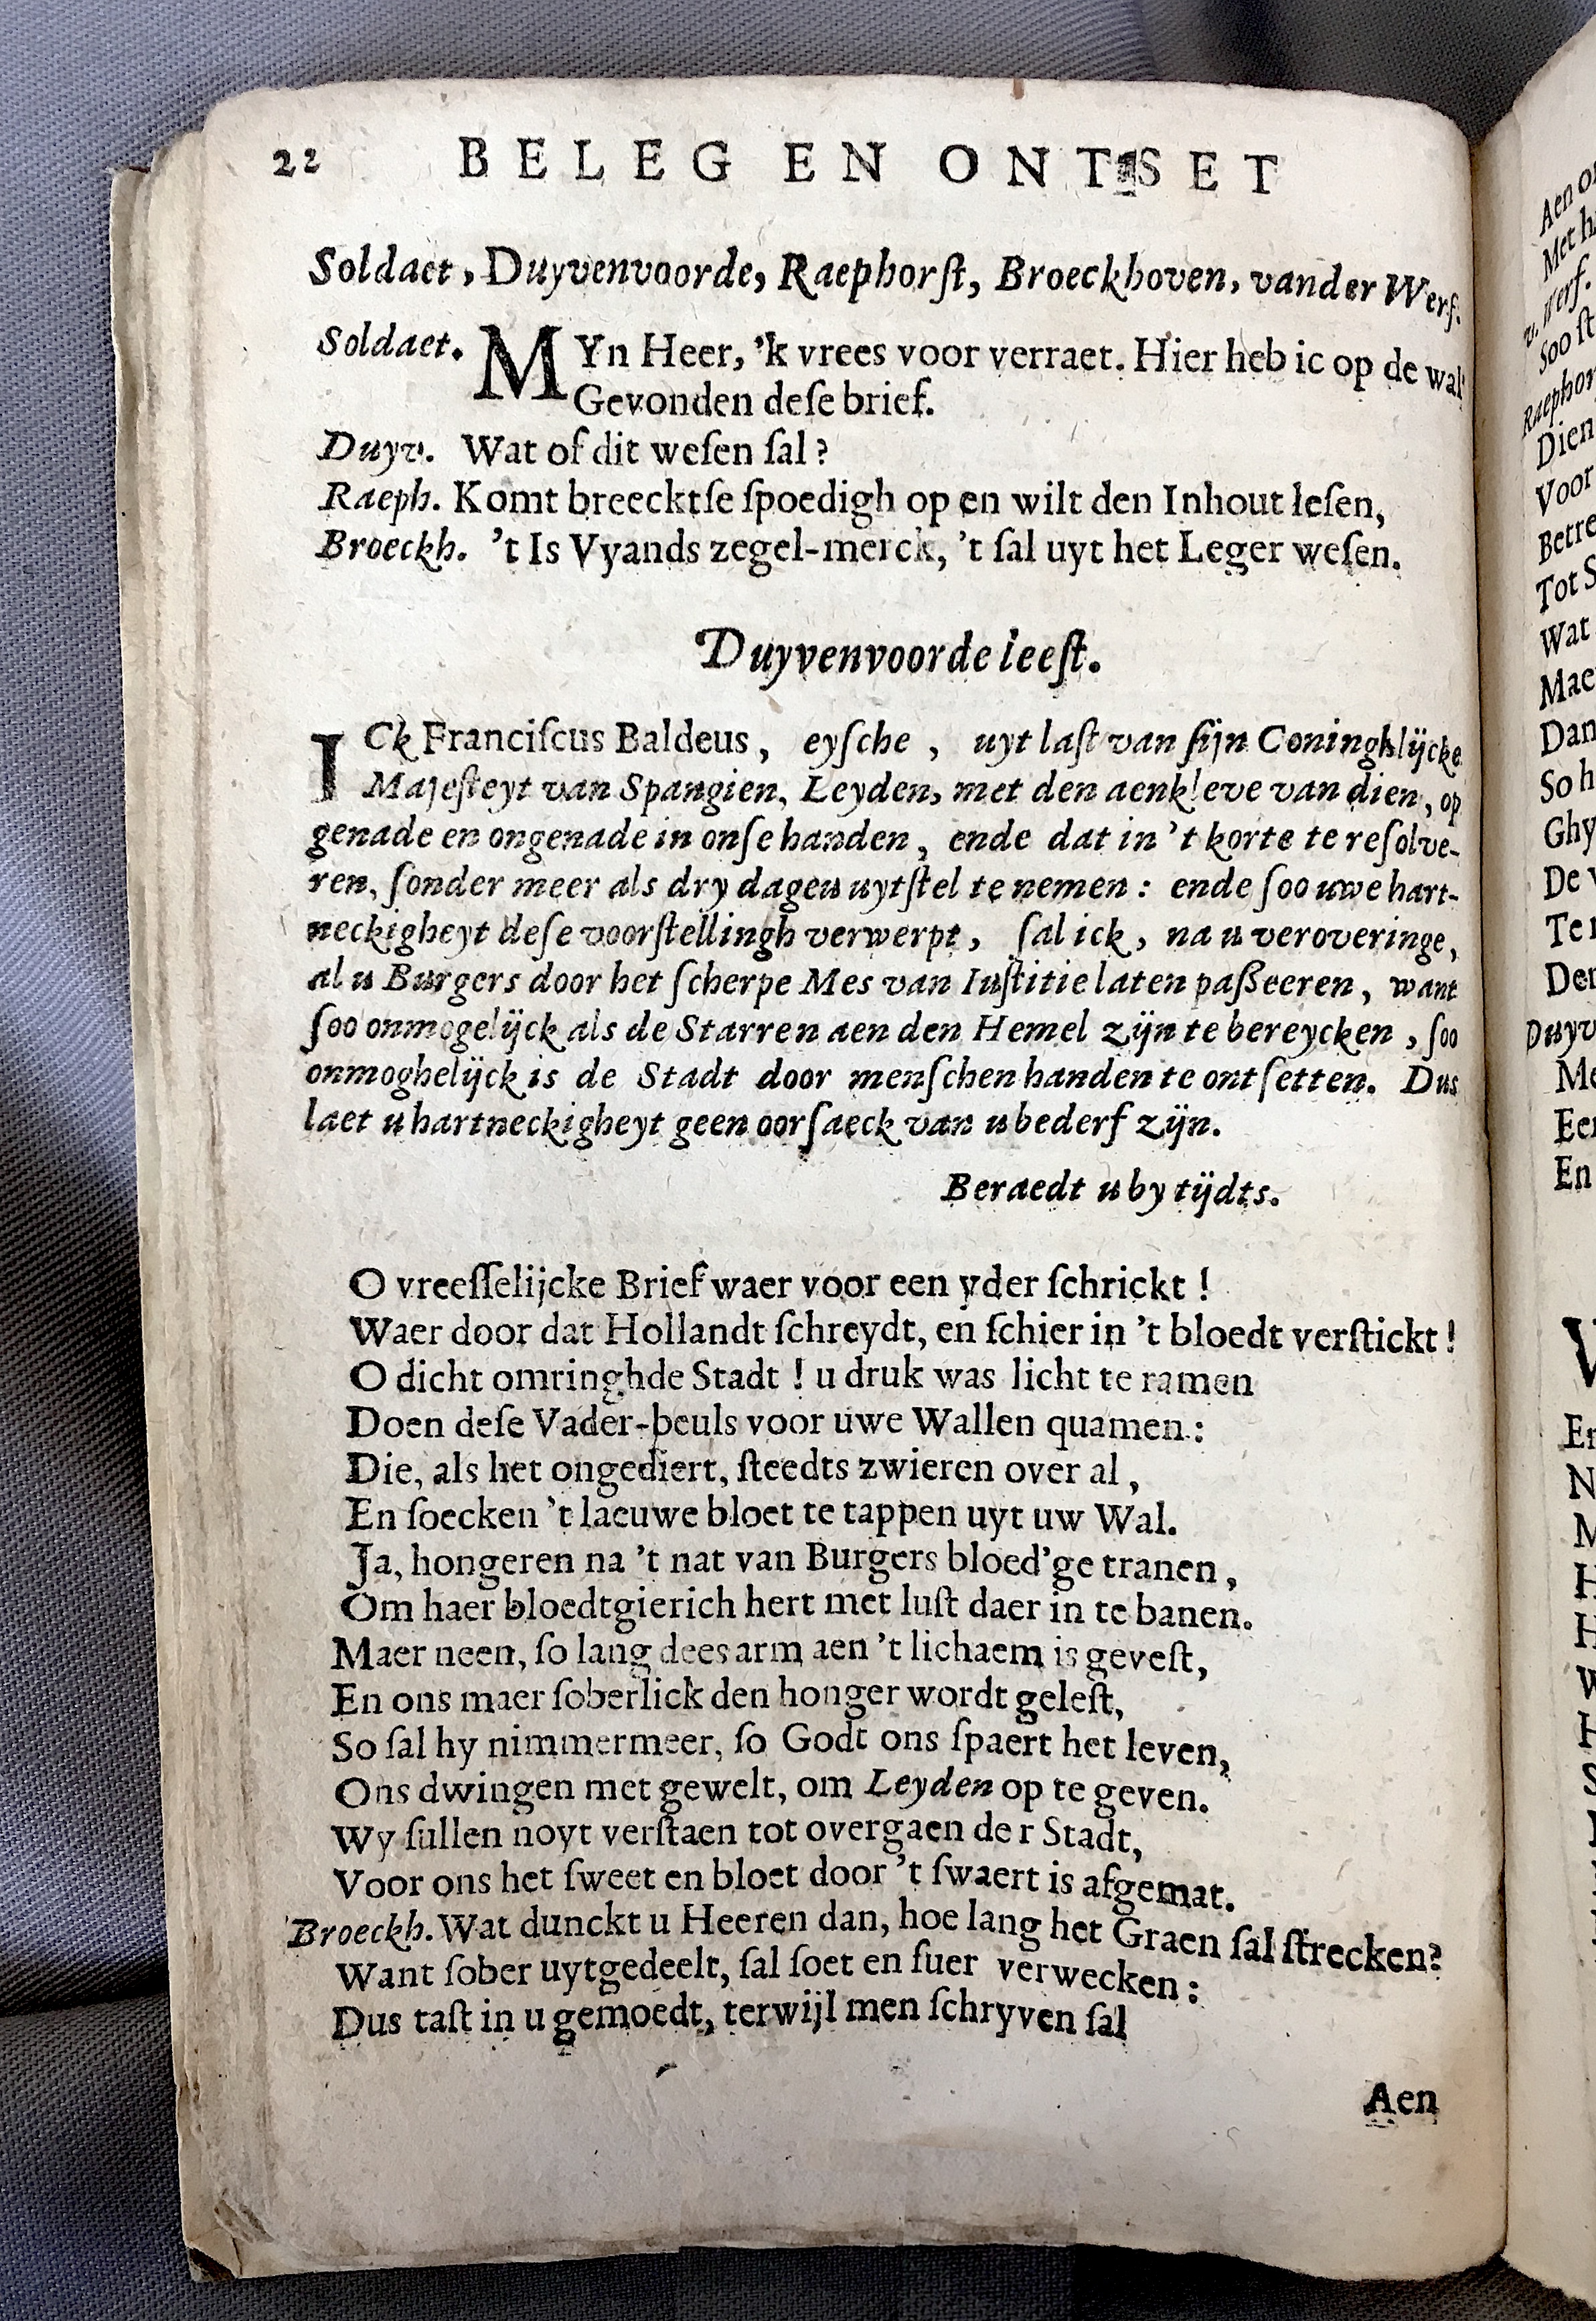 22 BELEG EN ONTSET
Soldaet, Duyvenvoorde, Raephorſt, Broeckhoven, vander Werf.
Soldaet. MYn Heer, 'k vrees voor verraet. Hier heb ic op de wal
Gevonden deſe brief.
Duyv. Wat of dit weſen ſal?
Raeph. Komt breecktſe ſpoedigh op en wilt den Inhout leſen,
Broeckh. 't Is Vyands zegel-merck, 't ſal uyt het Leger weſen.
Duyvenvoorde leeſt.
ICk Franciſcus Baldeus, eyſche, uyt laſt van ſijn Coninghlijcke
Majeſteyt van Spangien, Leyden, met den aenkleve van dien, op
genade en ongenade in onſe handen, ende dat in 't korte te reſolve-
ren, ſonder meer als dry dageu uytſtel te nemen: ende ſoo uwe hart-
neckigheyt deſe voorſtellingh verwerpt, ſal ick, na u veroveringe,
al u Burgers door het ſcherpe Mes van Iuſtitie laten paßeeren, want
ſoo onmogelijck als de Starren aen den Hemel zijn te bereycken, ſoo
onmoghelijck is de Stadt door menſchen handen te ontſetten. Dus
laet u hartneckigheyt geen oorſaeck van u bederf zijn.
Beraedt u by tijdts.
O vreeſſelijcke Brief waer voor een yder ſchrickt!
Waer door dat Hollandt ſchreydt, en ſchier in 't bloedt verſtickt!
O dicht omringhde Stadt! u druk was licht te ramen
Doen deſe Vader-beuls voor uwe Wallen quamen:
Die, als het ongediert, ſteedts zwieren over al,
En ſoecken 't laeuwe bloet te tappen uyt uw Wal.
Ja, hongeren na 't nat van Burgers bloed'ge tranen,
Om haer bloedtgierich hert met luſt daer in te banen.
Maer neen, ſo lang dees arm aen 't lichaem is geveſt,
En ons maer ſoberlick den honger wordt geleſt,
So ſal hy nimmermeer, ſo Godt ons ſpaert het leven,
Ons dwingen met gewelt, om Leyden op te geven.
Wy ſullen noyt verſtaen tot overgaen der Stadt,
Voor ons het ſweet en bloet door 't ſwaert is afgemat.
Broeckh. Wat dunckt u Heeren dan, hoe lang het Graen ſal ſtrecken?
Want ſober uytgedeelt, ſal ſoet en ſuer verwecken:
Dus taſt in u gemoedt, terwijl men ſchryven ſal
Aen